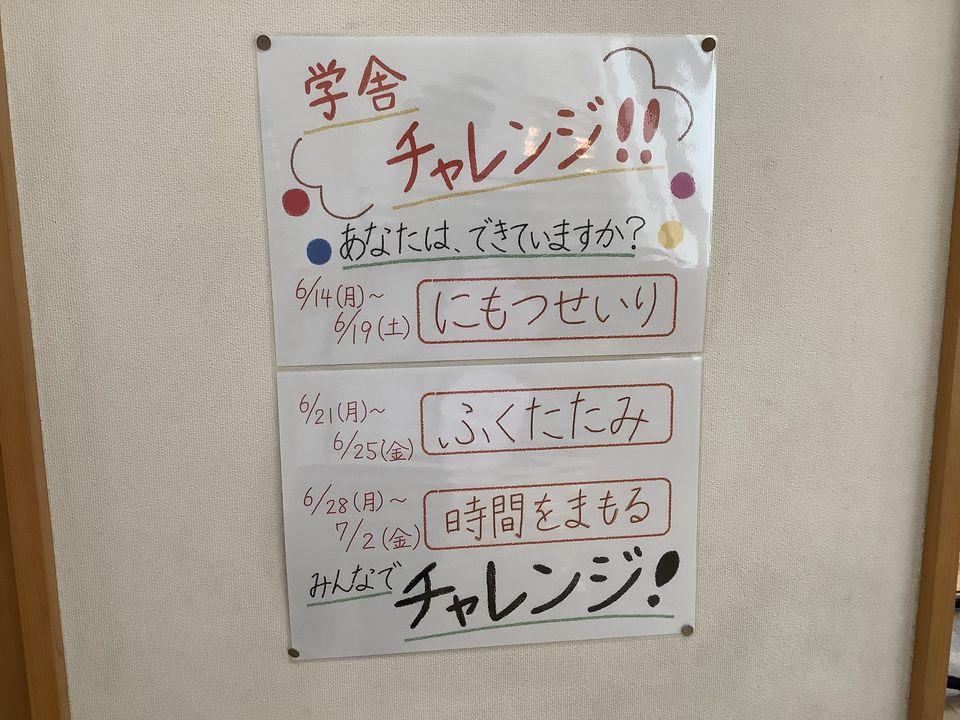 学舎
チャレンジ!!
あなたは、できていますか?
6/14(月)～
6/19(土)
にもつせいり
6/21(月)～
6/25(金)
ふくたたみ
6/28(月)～
7/2(金)
時間をまもる
みんなで
チャレンジ!